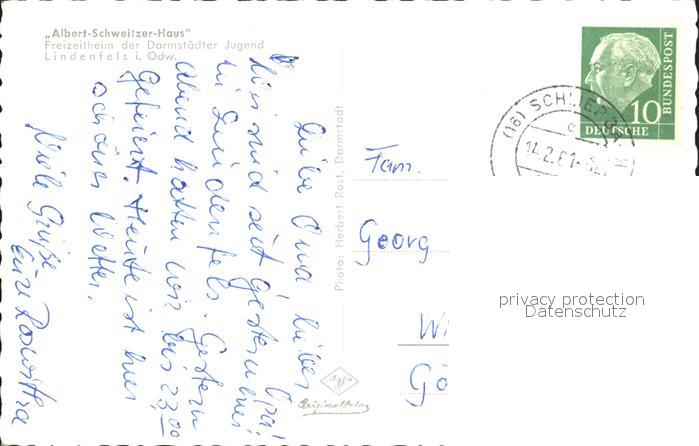 „Albert-Schweitzer-Haus"
Freizeitheim der Darmstädter Jugend
Lindenfels i. Odw.
Liebe Oma, lieber Opa!
Wir sind seit gestern hier
in Lindenfels. Gestern
Abend hatten wir bis 23,00
gefeiert. Heute ist hier
schönes Wetter.
Viele Grüße
Eure Roswitha
Photo: Herbert Rost, Darmstadt
Agfa
Originalfoto
Fam.
Georg
Wi
Gö
(16) SCHLIER
14.2.61-12
10
DEUTSCHE
BUNDESPOST
privacy protection
Datenschutz